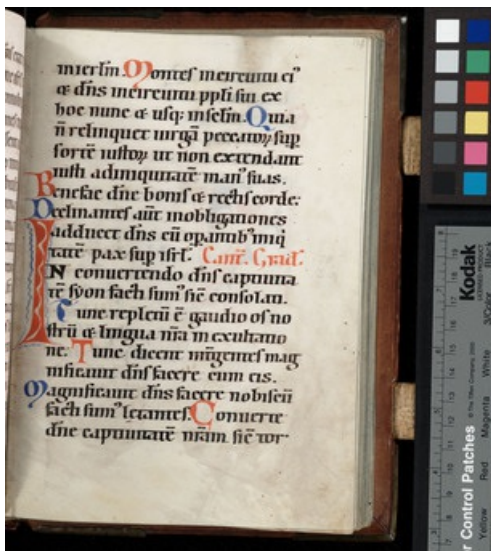 in ierlm. Montes in circuitu ei᾿
& dñs in circuitu ppli sui ex
hoc nunc & usq; in sc̄lm. Quia
ñ relinquet uirgā peccatoꝝ sup
sortē iustoꝝ ut non extendant
iusti ad iniquitatē man᾿ suas.
Benefac dñe bonis & rectis corde.
Declinantes aūt in obligationes
adducet dñs cū opantib᾿ iniq
tatē pax sup isrl. Cant. Grad.
IN conuertendo dñs captiuita
tē syon facti sum᾿ sic̄ consolati.
Tunc repletū ē gaudio os no
strū & lingua nr̄a in exultatio
ne. Tunc dicent int̄ gentes mag
nificauit dñs facere cum eis.
Magnificauit dñs facere nobiscū
facti sum᾿ letantes. Conuerte
dñe captiuitatē nr̄am sic̄ tor
Kodak
LICENSED PRODUCT
© The Tiffen Company, 2000
r Control Patches
Yellow Red Magenta White 3/Color Black